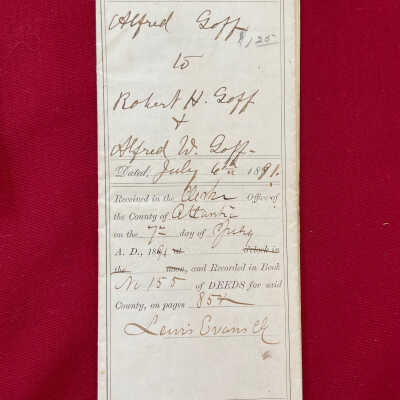 Alfred Goff
$1.25
to
Robert H. Goff
+
Alfred W. Goff-
Dated, July 6th 1891.
Received in the Clerks Office of
the County of Atlantic
on the 7th day of July
A. D., 1891 at o'clock in
the noon, and Recorded in Book
No 155 of DEEDS for said
County, on pages 85+
Lewis Evans Clk